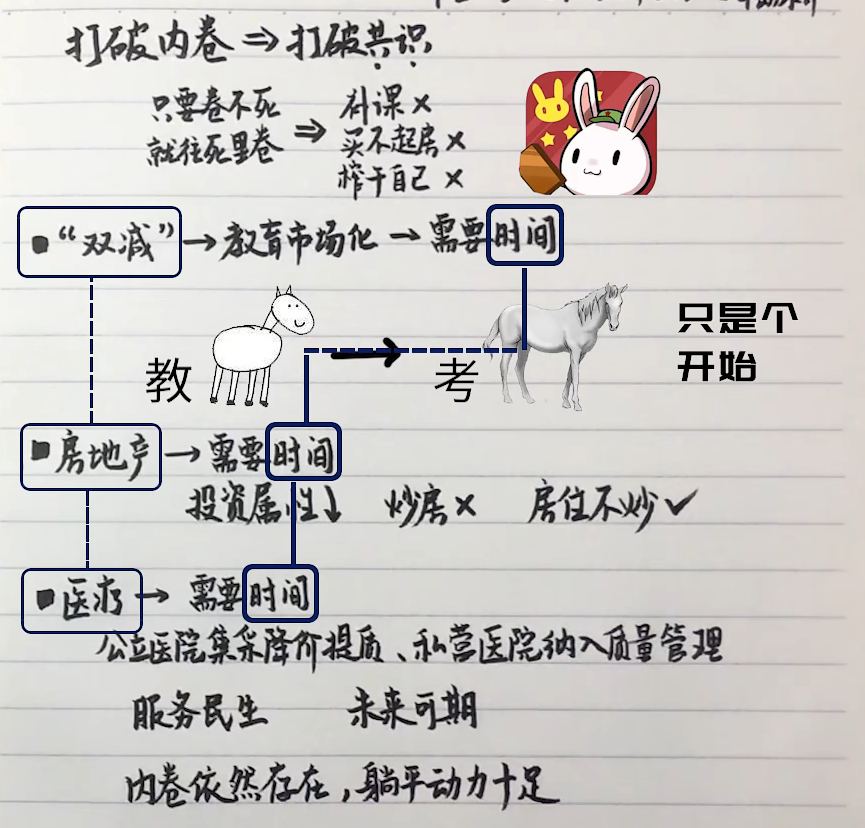 打破内卷⇒打破共识
只要卷不死
就往死里卷
⇒
补课×
买不起房×
榨干自己×
■“双减”→教育市场化→需要时间
教
→
考
只是个
开始
■房地产→需要时间
投资属性↓ 炒房× 房住不炒✓
■医疗→需要时间
公立医院集采降价提质、私营医院纳入质量管理
服务民生 未来可期
内卷依然存在,躺平动力十足